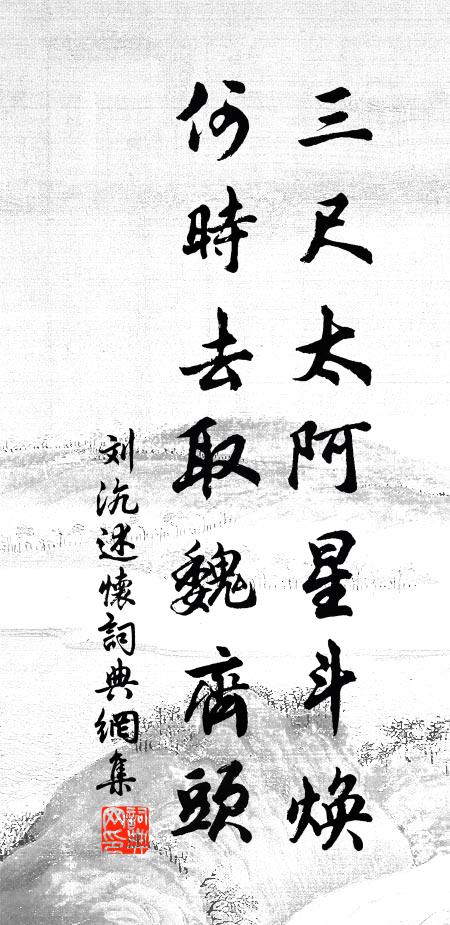 三尺太阿星斗焕
何時去取魏齊頭
刘沆述懷詞典網集